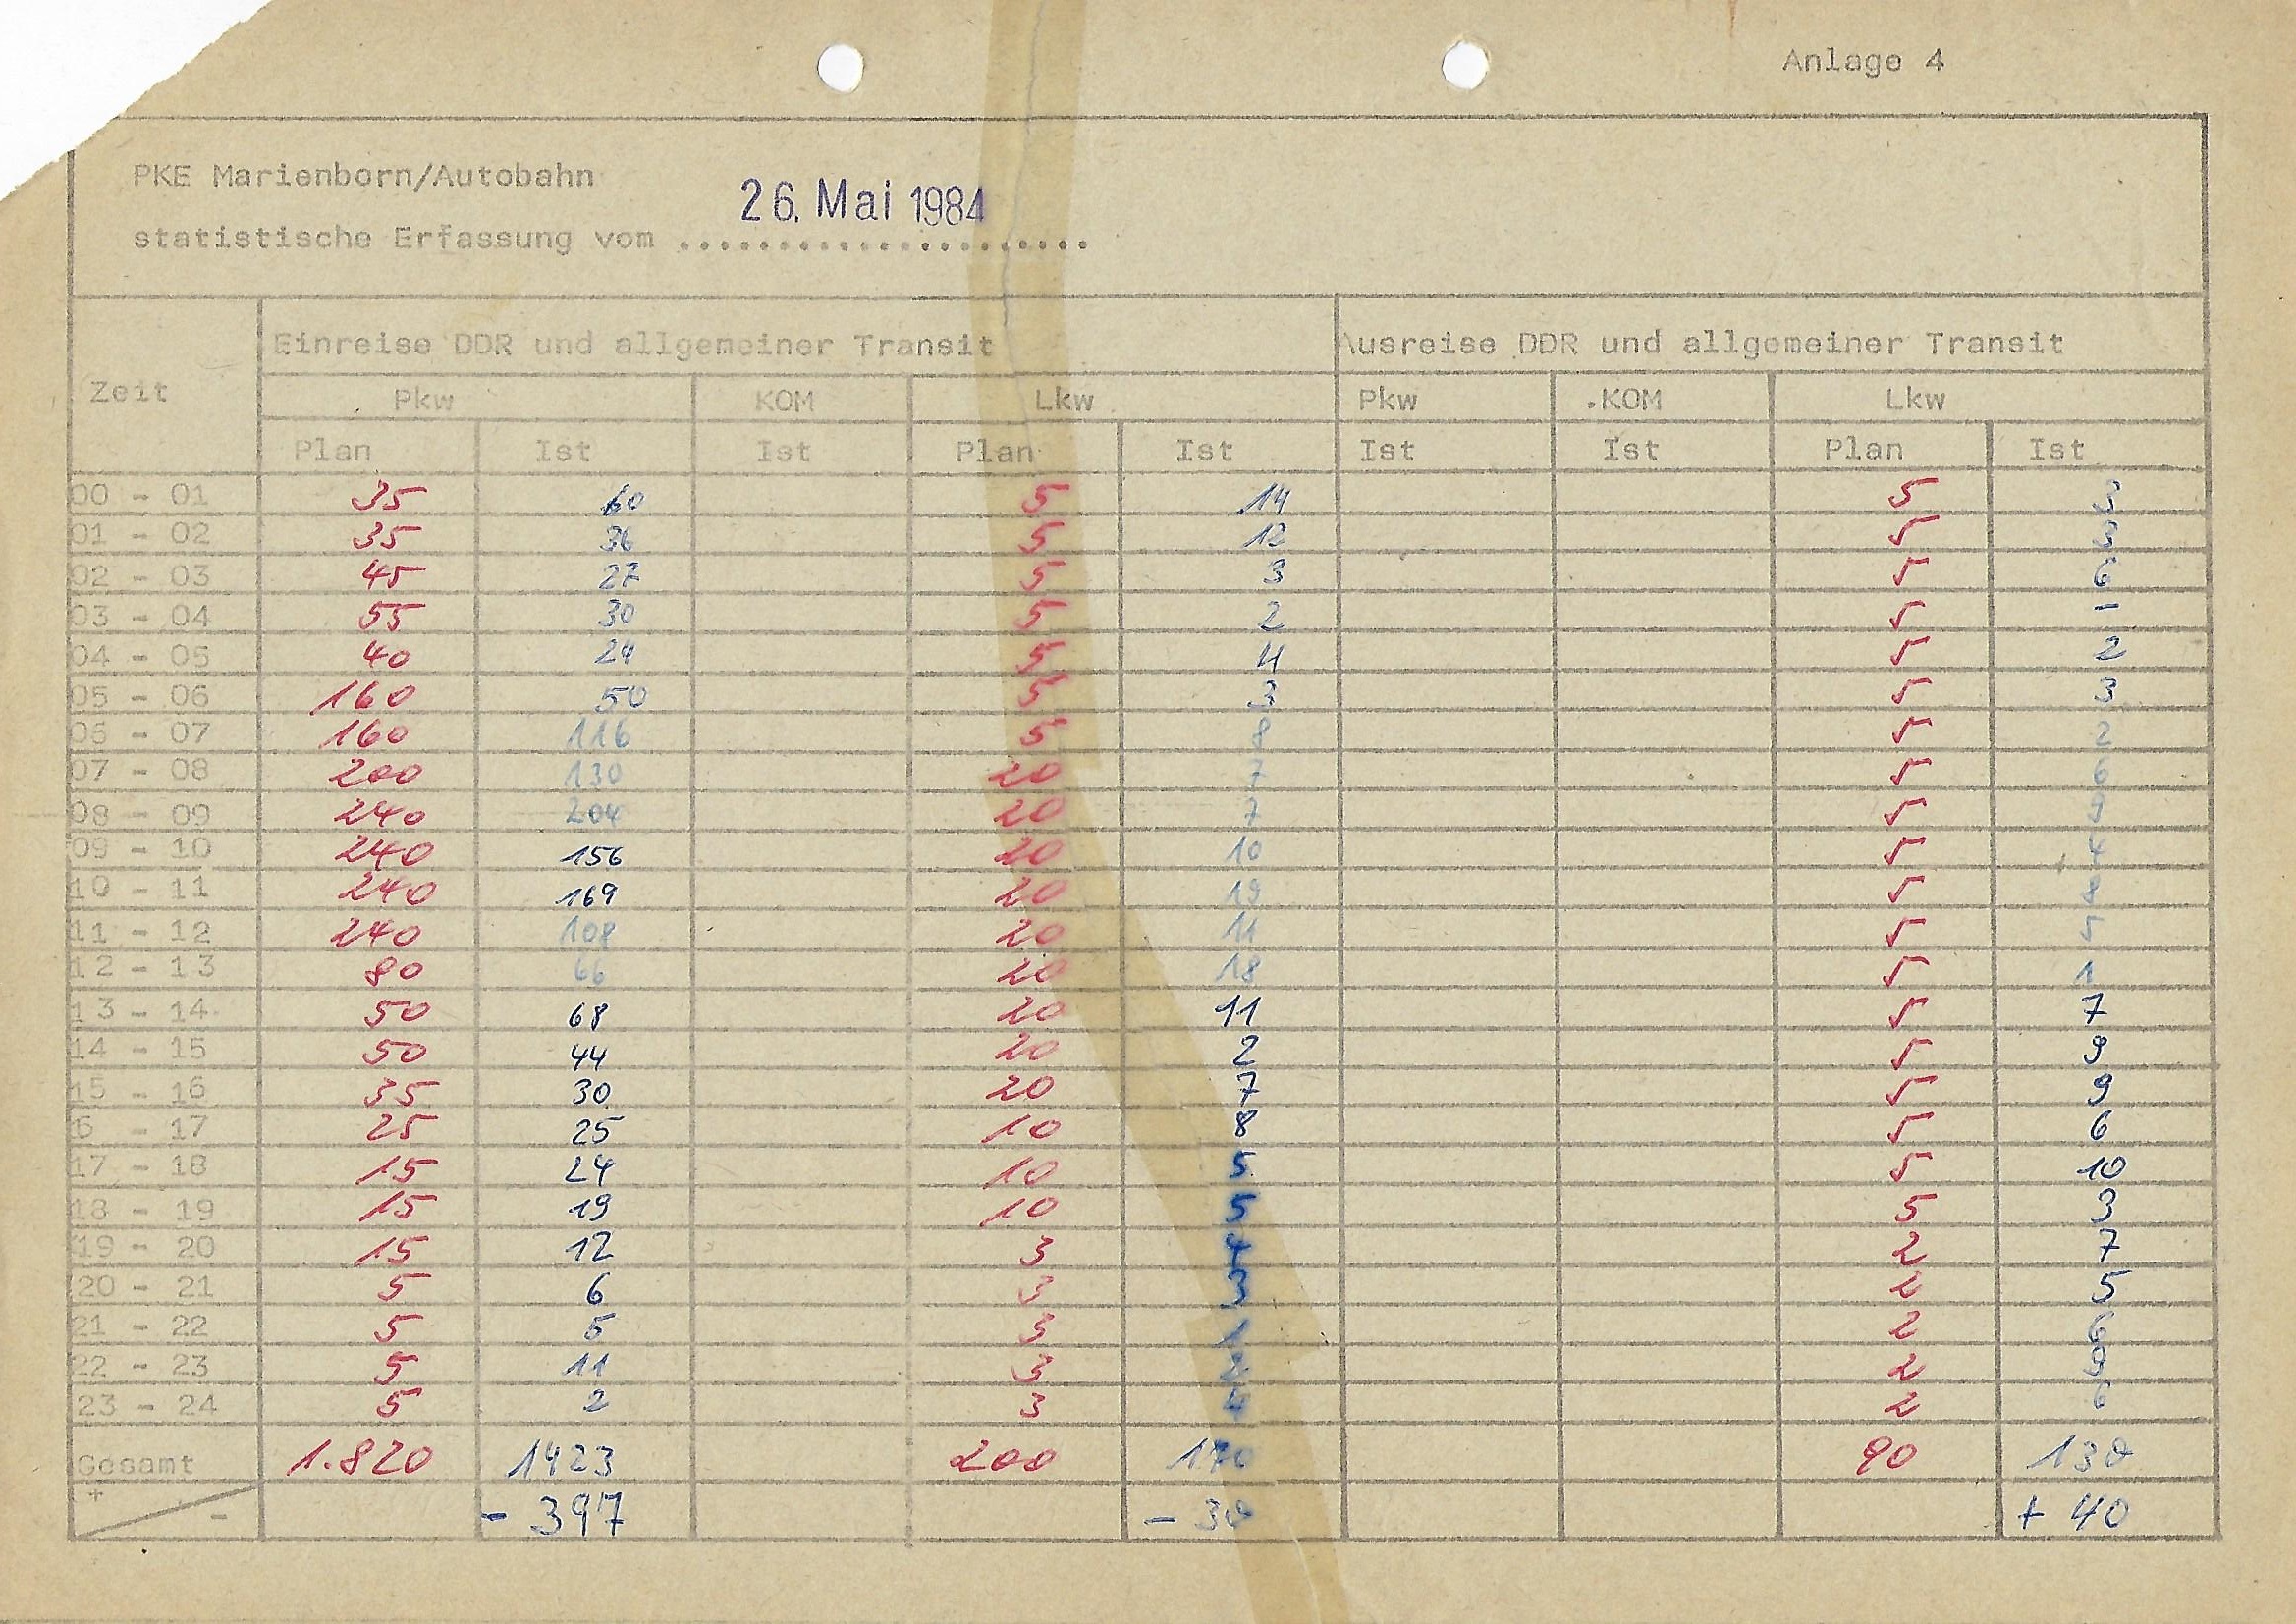 Anlage 4
PKE Marienborn/Autobahn
26. Mai 1984
statistische Erfassung vom ......................
Einreise DDR und allgemeiner Transit Ausreise DDR und allgemeiner Transit
Zeit
Pkw KOM Lkw Pkw .KOM Lkw
Plan Ist Ist Plan Ist Ist Ist Plan Ist
00 - 01 35 60 5 14 5 3
01 - 02 35 36 5 12 5 3
02 - 03 45 27 5 3 5 6
03 - 04 55 30 5 2 5 -
04 - 05 40 24 5 4 5 2
05 - 06 160 50 5 3 5 3
06 - 07 160 116 5 8 5 2
07 - 08 200 130 20 7 5 6
08 - 09 240 204 20 7 5 9
09 - 10 240 156 20 10 5 4
10 - 11 240 169 20 19 5 8
11 - 12 240 108 20 11 5 5
12 - 13 80 66 20 18 5 1
13 - 14 50 68 20 11 5 7
14 - 15 50 44 20 2 5 9
15 - 16 35 30 20 7 5 9
6 - 17 25 25 10 8 5 6
17 - 18 15 24 10 5 5 10
18 - 19 15 19 10 5 5 3
19 - 20 15 12 3 4 2 7
20 - 21 5 6 3 3 2 5
21 - 22 5 5 3 1 2 6
22 - 23 5 11 3 2 2 9
23 - 24 5 2 3 4 2 6
Gesamt 1.820 1423 200 170 90 130
+ - - 397 - 30 + 40